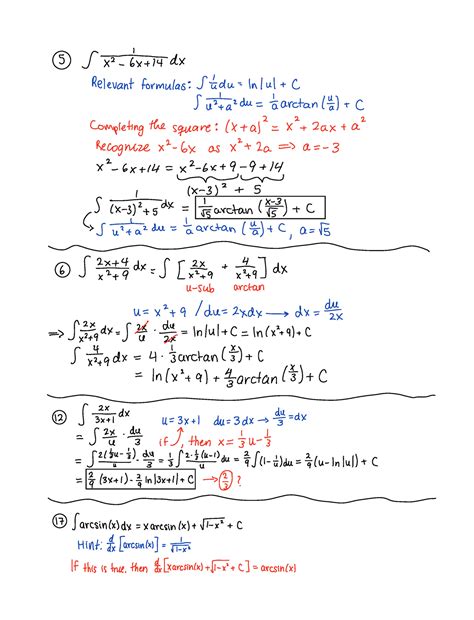 ⑤ ∫ 1/(x² − 6x + 14) dx
Relevant formulas: ∫ 1/u du = ln|u| + C
∫ 1/(u² + a²) du = 1/a arctan (u/a) + C
Completing the square: (x + a)² = x² + 2ax + a²
Recognize x² − 6x as x² + 2a ⟹ a = −3
x² − 6x + 14 = x² − 6x + 9 − 9 + 14
(x−3)² + 5
∫ 1/((x−3)² + 5) dx = 1/√5 arctan (x−3/√5) + C
∫ 1/(u² + a²) du = 1/a arctan (u/a) + C, a = √5
⑥ ∫ (2x+4)/(x²+9) dx = ∫ [2x/(x²+9) + 4/(x²+9)] dx
u-sub arctan
u = x² + 9 / du = 2xdx → dx = du/2x
⟹ ∫ 2x/(x²+9) dx = ∫ 2x/u · du/2x = ln|u| + C = ln(x²+9) + C
∫ 4/(x²+9) dx = 4 · 1/3 arctan (x/3) + C
= ln(x²+9) + 4/3 arctan (x/3) + C
⑫ ∫ 2x/(3x+1) dx u = 3x+1 du = 3dx → du/3 = dx
= ∫ 2x/u · du/3 if, then x = 1/3 u − 1/3
= ∫ 2(1/3 u − 1/3)/u · du/3 = 1/3 ∫ 2·1/3 (u−1)/u du = 2/9 ∫ (1 − 1/u) du = 2/9 (u − ln|u|) + C
= 2/9 (3x+1) − 2/9 ln|3x+1| + C → 2/3 ?
⑰ ∫ arcsin(x) dx = x arcsin(x) + √1−x² + C
Hint: d/dx [arcsin(x)] = 1/√1−x²
If this is true, then d/dx [x arcsin(x) + √1−x² + C] = arcsin(x)